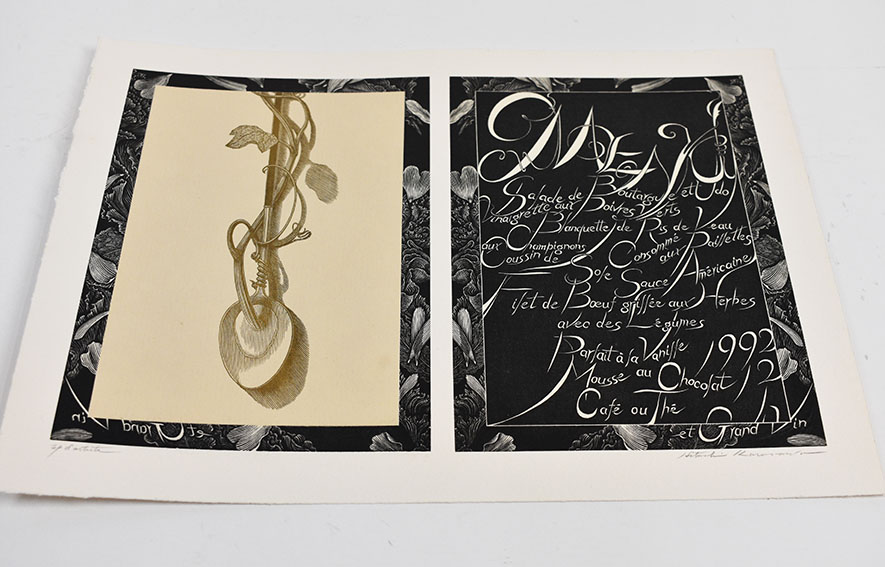 MENU
Salade de Boutargue et Udo
Vinaigrette aux Poivres Verts
Blanquette de Ris de Veau
aux Champignons
Consommé aux Paillettes
Coussin de Sole Sauce Américaine
Filet de Bœuf grillée aux Herbes
avec des Légumes
Parfait à la Vanille
Mousse au Chocolat
Café ou Thé
1992
12
et Grand Vin